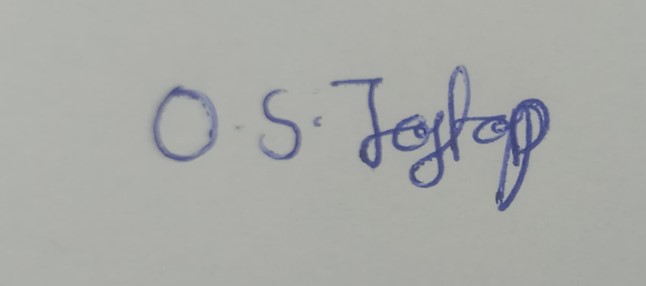 O. S. Jagtap